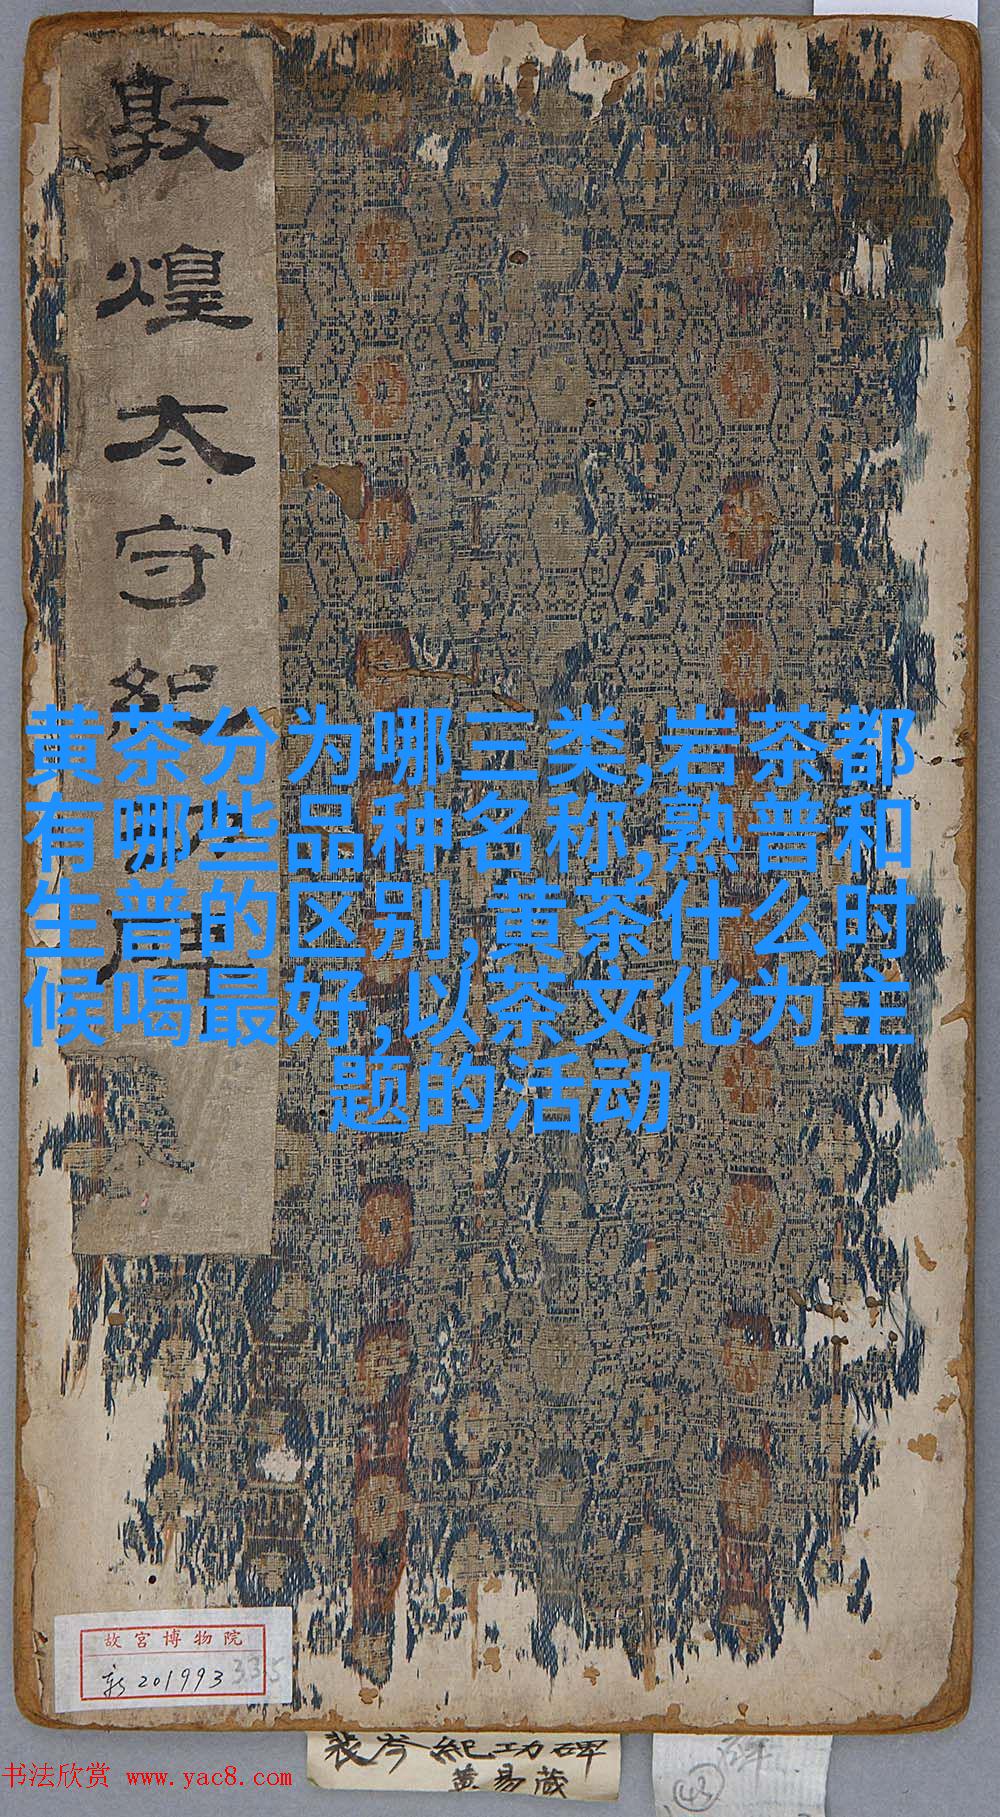 敦煌太守紀功碑
黄茶分为哪三类,岩茶都
有哪些品种名称,熟普和
生普的区别,黄茶什么时
候喝最好,以茶文化为主
题的活动
故宫博物院
新201993
335
裴岑紀功碑
黄易藏
43
书法欣赏 www.yac8.com